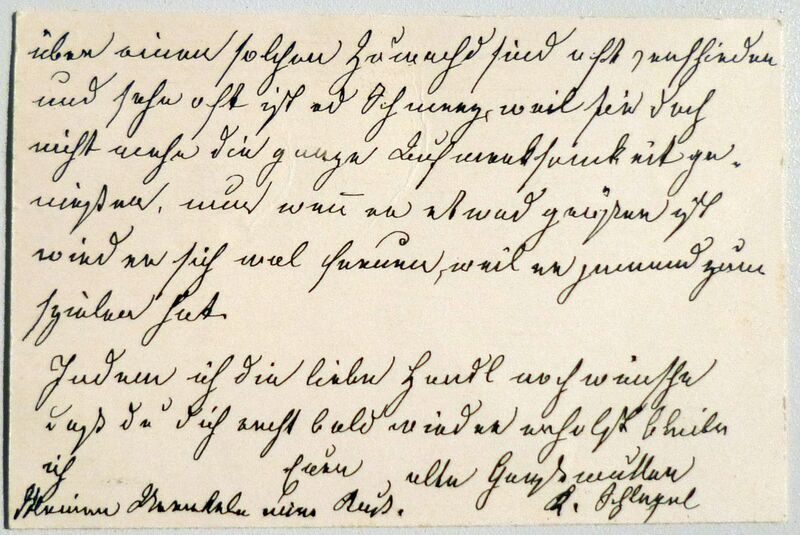 über einen solchen Zuwachs sind oft verschieden
und sehr oft ist es Schmerz, weil sie doch
nicht mehr die ganze Aufmerksamkeit ge-
nießen, nur wenn er etwas größer ist
wird er sich mal freuen, weil er jemand zum
spielen hat.
Indem ich dir liebe Handl noch wünsche
daß du dich recht bald wieder erholst bleibe
ich Euere alte Großmutter
Kleinen Urenkeln einen Kuß. K. Schlegel